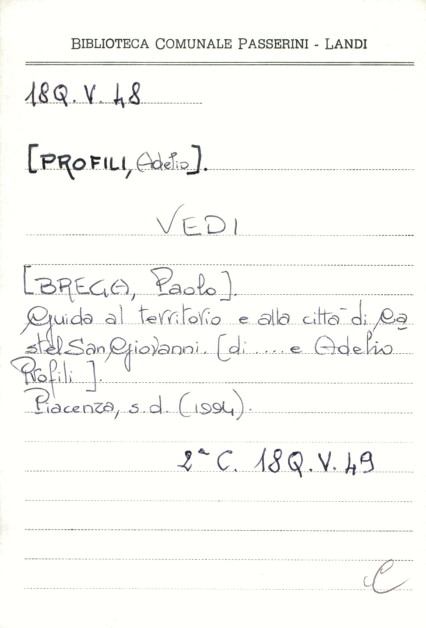 BIBLIOTECA COMUNALE PASSERINI - LANDI
18Q. V. 48
[PROFILI, Adelio].
VEDI
[BREGA, Paolo].
Guida al territorio e alla città di Ca
stel San Giovanni. [di .... e Adelio
Profili].
Piacenza, s.d. (1994).
2ª C. 18Q. V. 49